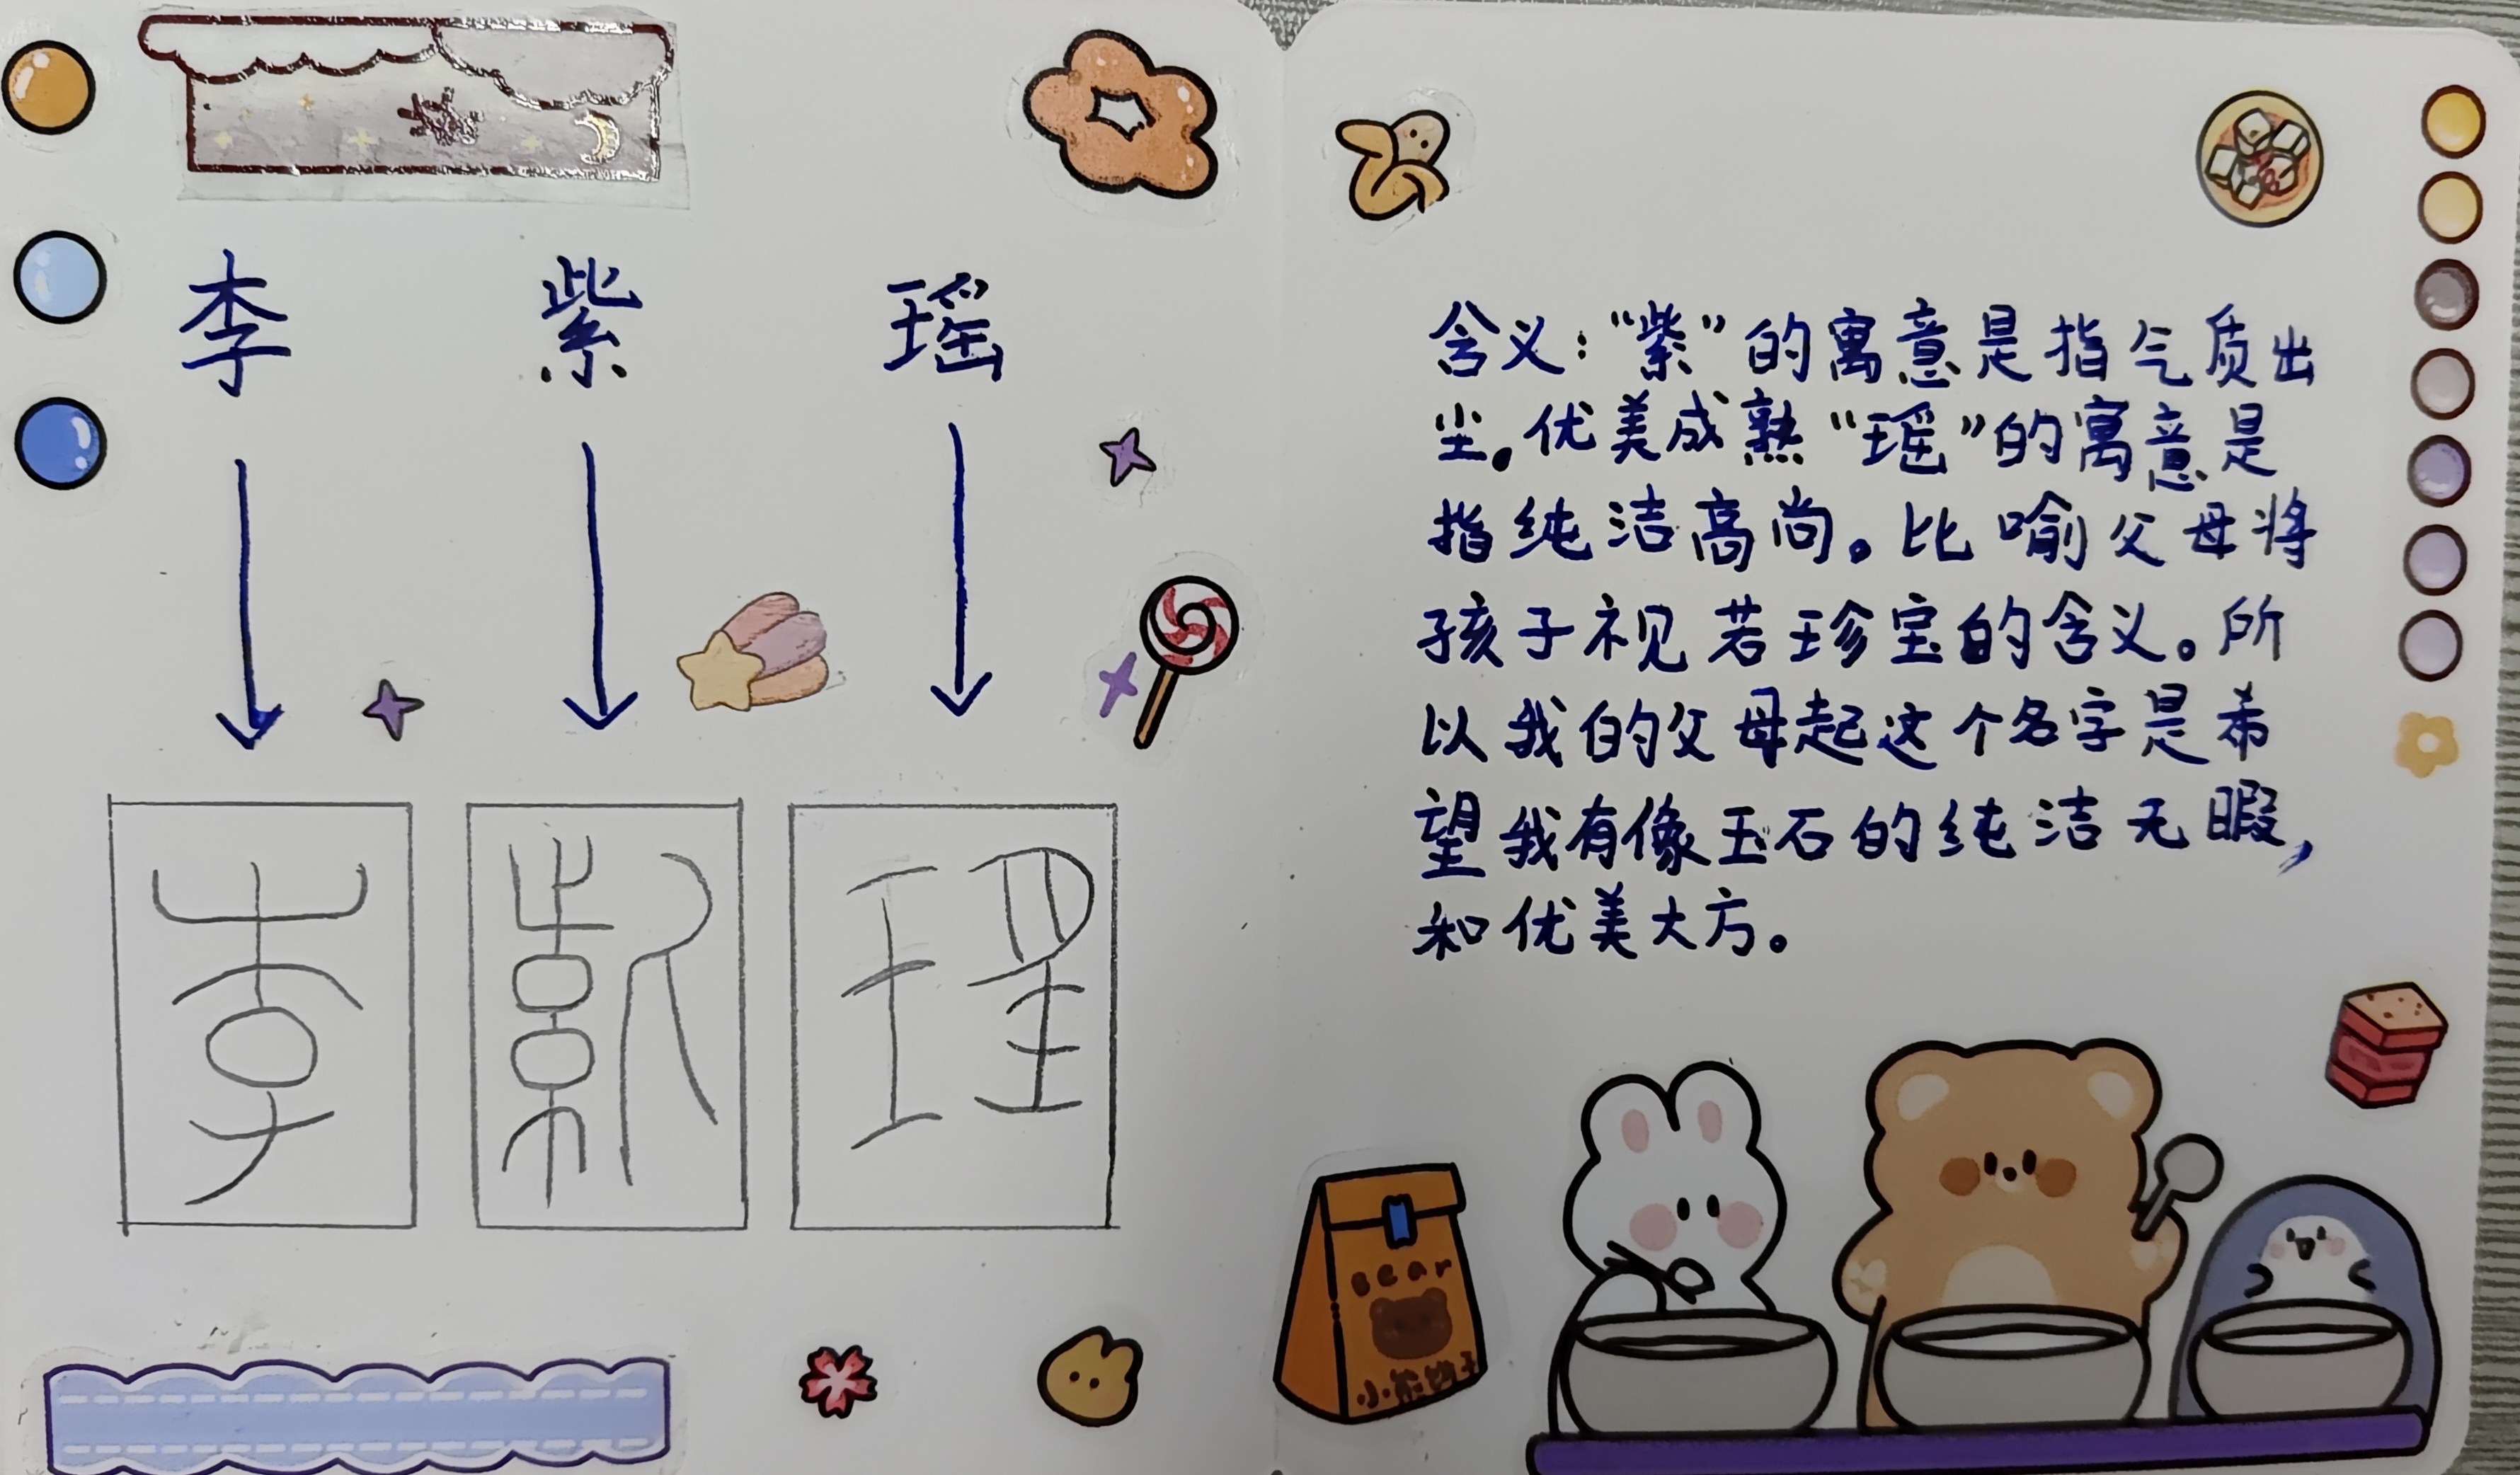 李 紫 瑶
含义：“紫”的寓意是指气质出
尘。优美成熟“瑶”的寓意是
指纯洁高尚。比喻父母将
孩子视若珍宝的含义。所
以我的父母起这个名字是希
望我有像玉石的纯洁无暇，
和优美大方。
bear
小熊